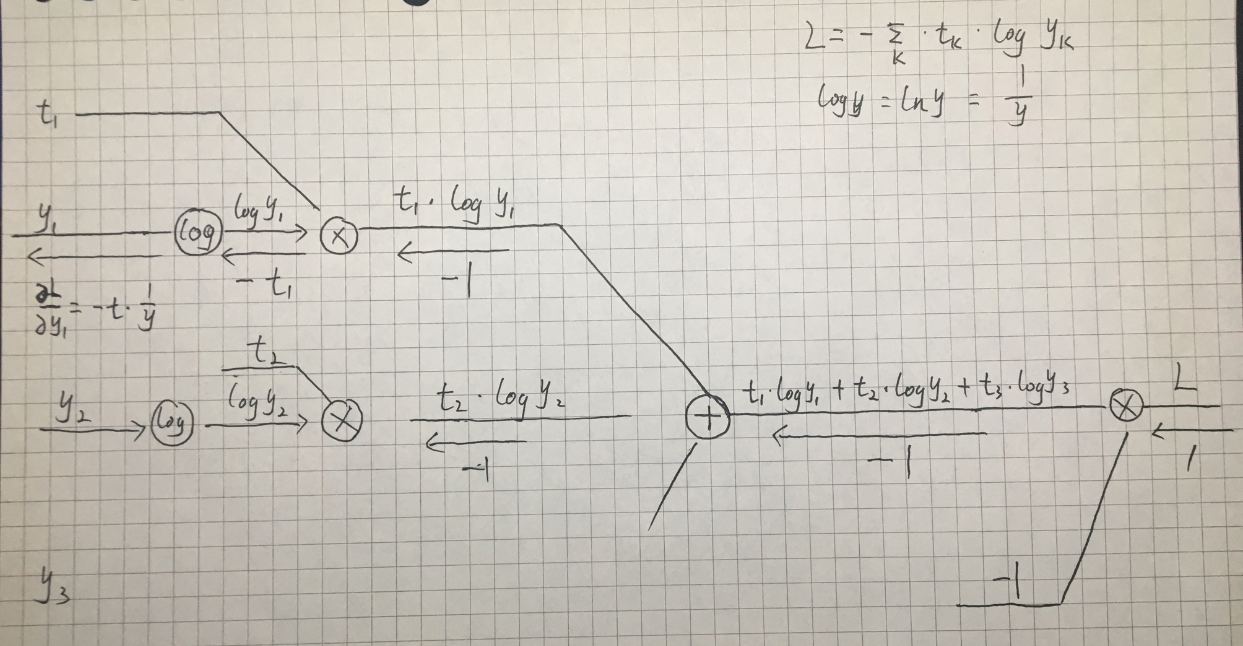 L = - Σ · tₖ · log yₖ
K
log y = ln y = 1/y
t₁
y₁
log
log y₁
×
t₁ · log y₁
- t₁
-1
∂L/∂y₁ = -t · 1/y
t₂
y₂
log
log y₂
×
t₂ · log y₂
-1
+
t₁·log y₁ + t₂·log y₂ + t₃·log y₃
-1
×
L
1
-1
y₃